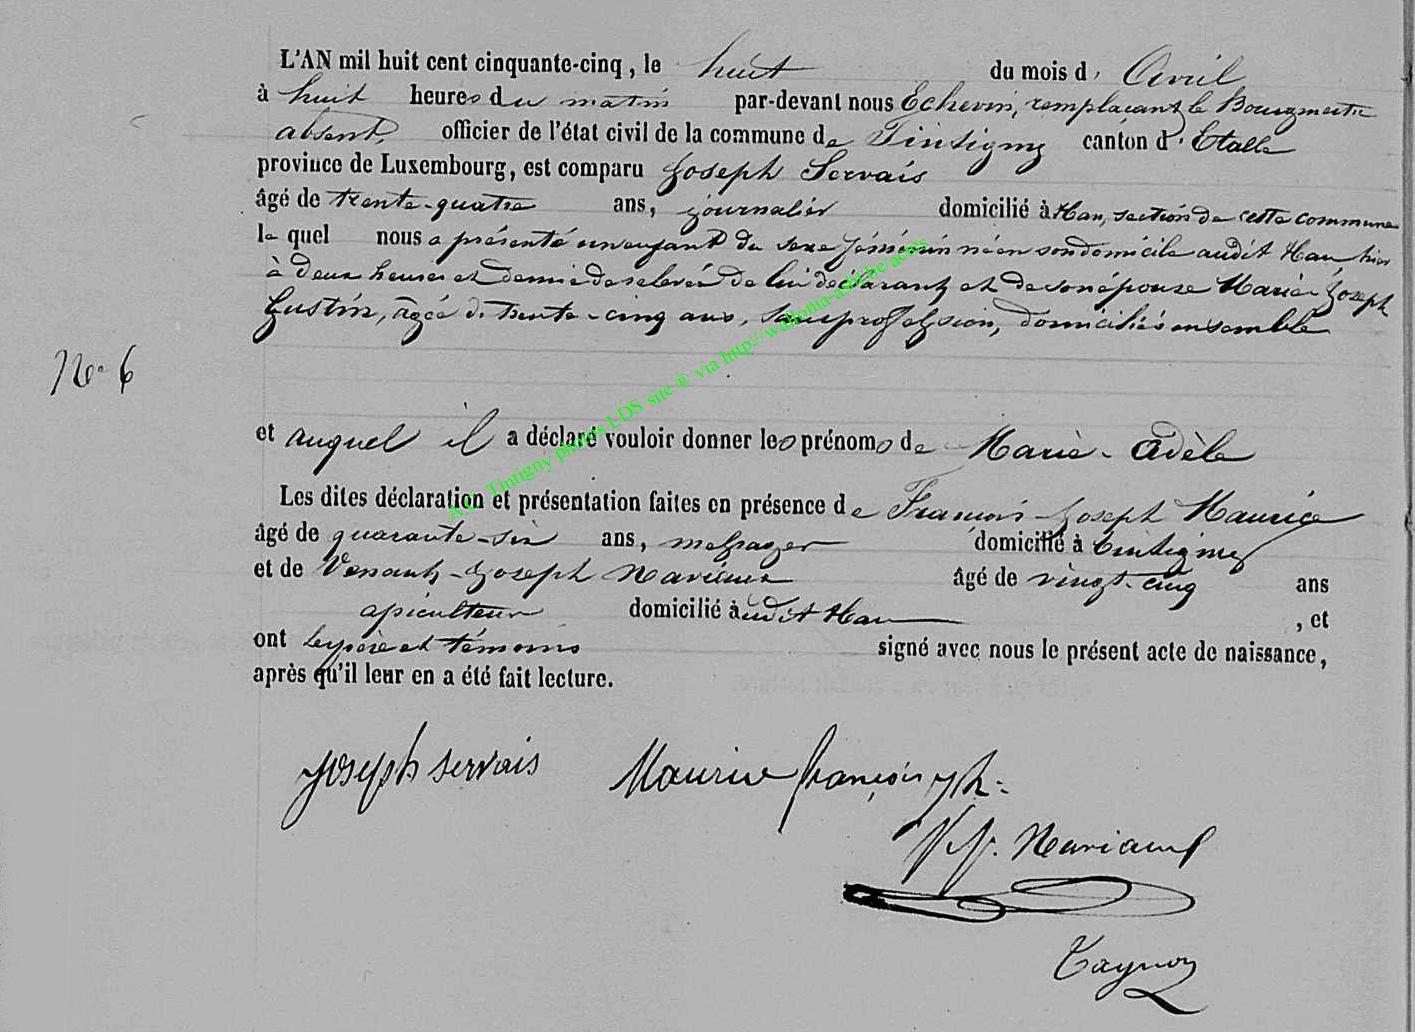 L'AN mil huit cent cinquante-cinq, le huit du mois d'Avril
à huit heures du matin par-devant nous Echevin, remplaçant le Bourgmestre
absent, officier de l'état civil de la commune de Tintigny canton d'Etalle
province de Luxembourg, est comparu Joseph Servais
âgé de trente-quatre ans, journalier domicilié à Han, section de cette commune
le quel nous a présenté un enfant du sexe féminin né en son domicile audit Han hier
à deux heures et demie de relevée de lui déclarant et de son épouse Marie-Joseph
Gustin, âgée de trente-cinq ans, sans profession, domiciliés ensemble
N° 6
et auquel il a déclaré vouloir donner les prénoms de Marie-Adèle
Les dites déclaration et présentation faites en présence de François-Joseph Maurice
âgé de quarante-six ans, messager domicilié à Tintigny
et de Venant-Joseph âgé de vingt-cinq ans
apiculteur domicilié audit Han , et
ont les père et témoins signé avec nous le présent acte de naissance,
après qu'il leur en a été fait lecture.
Joseph Servais Maurice françois jph:
V. J.
A.C. Tintigny photos LDS site ® via http://wallonia-asbl.be/actes